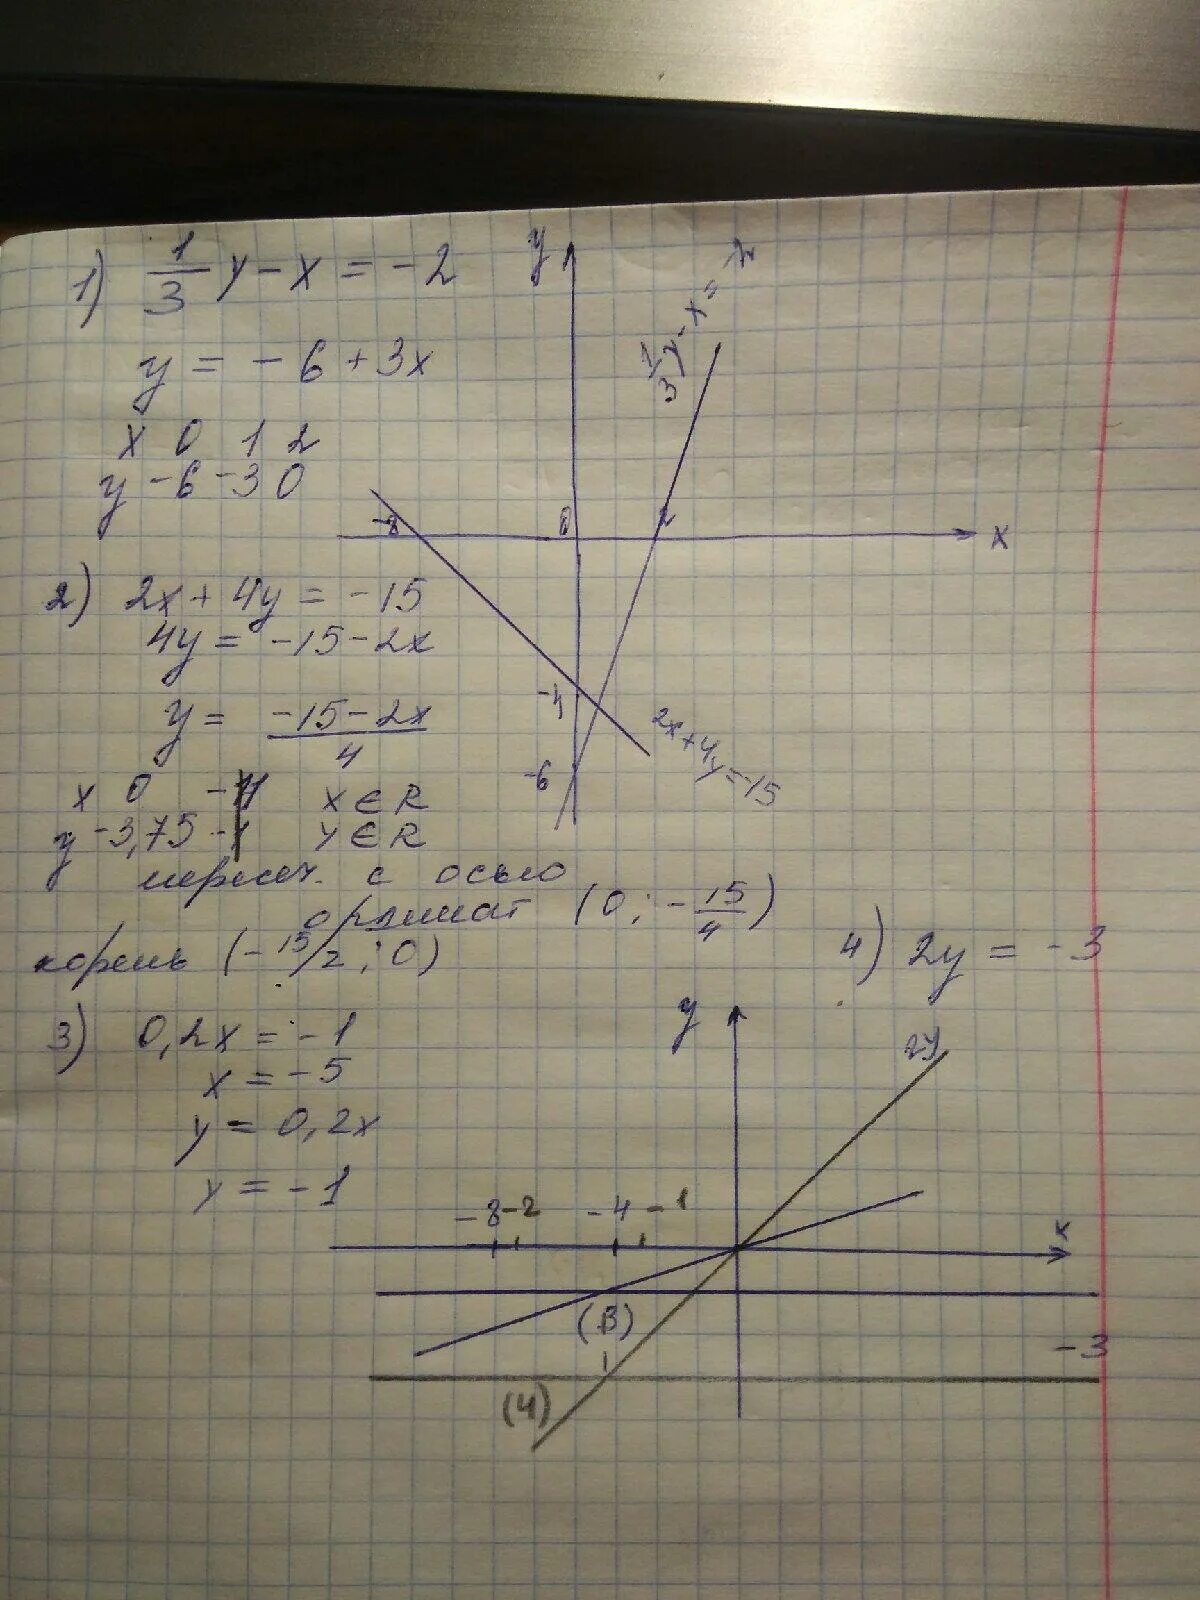 1) 1/3 y - x = -2
y = -6 + 3x
x 0 1 2
y -6 -3 0
y
1/3 y - x = -2
-8 0 2 x
-4
-6
2x + 4y = -15
2) 2x + 4y = -15
4y = -15 - 2x
y = (-15 - 2x)/4
x 0 x ∈ R
y -3,75 y ∈ R
пересеч. с осью
ординат (0; -15/4)
корень (-15/2; 0)
3) 0,2x = -1
x = -5
y = 0,2x
y = -1
4) 2y = -3
y
2y
-8 -2 -4 -1 x
(3)
-3
(4)